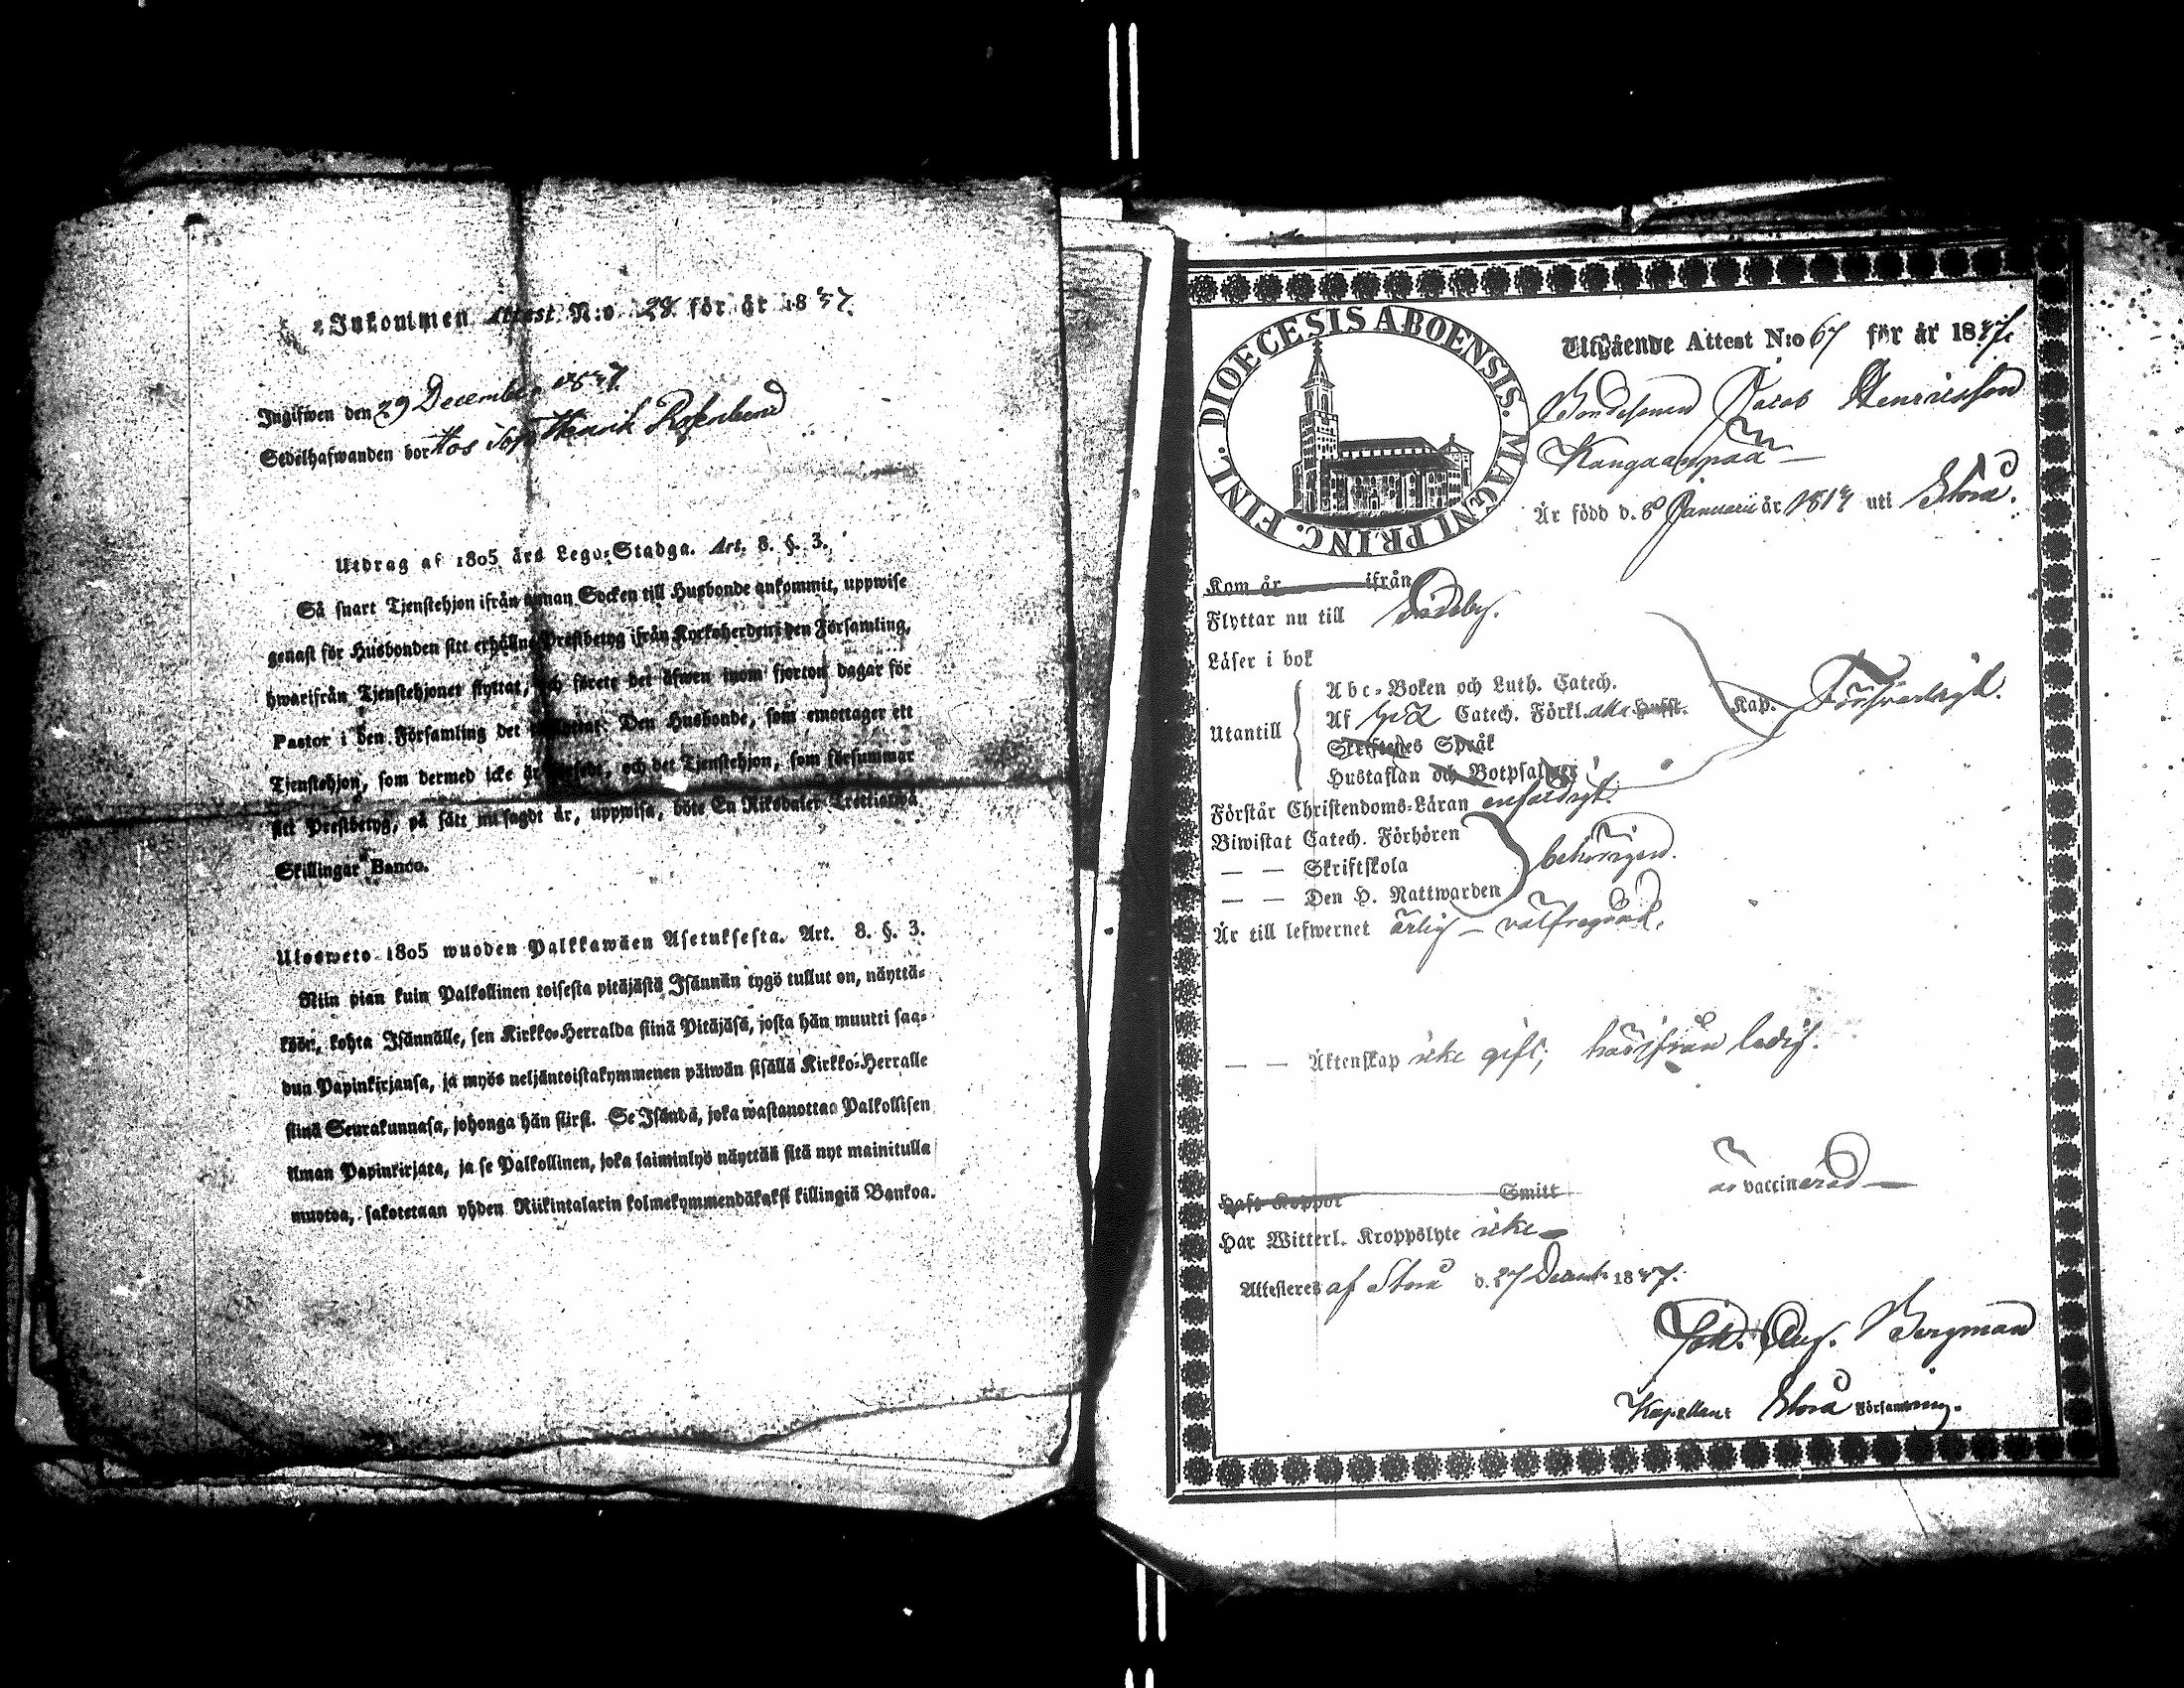 Inkommen Attest N:o 28 för år 1847.
Ingifwen den 29 December 1847.
Sedelhafwanden bor Hos Henrik Rosenlund
Utdrag af 1805 års Lego-Stadga. Art. 8. §. 3.
Så snart Tjenstehjon ifrån annan Socken till Husbonde ankommit, uppwise
genast för Husbonden sitt erhållne Prestbetyg ifrån Kyrkoherden i den Församling,
hwarifrån Tjenstehjonet flyttat, och förete det äfwen inom fjorton dagar för
Pastor i den Församling det Den Husbonde, som emottager ett
Tjenstehjon, som dermed icke är försedt, och det Tjenstehjon, som försummar
sitt Prestbetyg, på sätt nu sagdt är, uppwisa, böte En Riksdaler Trettiotwå
Skillingar Banco.
Ulosweto 1805 wuoden Palkkawäen Asetuksesta. Art. 8. §. 3.
Niin pian kuin Palkollinen toisesta pitäjästä Isännän tygö tullut on, näyttä-
köön, kohta Isännälle, sen Kirkko-Herralda siinä Pitäjäsä, josta hän muutti saa-
dun Papinkirjansa, ja myös neljäntoistakymmenen päiwän sisällä Kirkko-Herralle
siinä Seurakunnasa, johonga hän siirst. Se Isändä, joka wastanottaa Palkollisen
ilman Papinkirjata, ja se Palkollinen, joka laiminlyö näyttää sitä nyt mainitulla
muotoa, sakotetaan yhden Riikintalarin kolmekymmendäkaksi killingiä Bankoa.
FINL. DIOECESIS ABOENSIS. MAGNI PRINC.
Utgående Attest N:o 67 för år 1847.
Bondesonen Jacob Henricsson
Kangaanpää
Är född d. 8 Januarii år 1817 uti Storå.
Kom år ifrån
Flyttar nu till Sideby.
Läser i bok
Abc-Boken och Luth. Catech.
Utantill Af Catech. Förkl. Husst. Kap. Försvarligt.
Skriftenes Språk
Hustaflan och Botpsalmer
Förstår Christendoms-Läran enfaldigt.
Biwistat Catech. Förhören
— — Skriftskola behörigen.
— — Den H. Nattwarden
Är till lefwernet ärlig - välfregdad.
— — Äktenskap icke gift; härifrån ledig.
Haft Koppor Smitt är vaccinerad —
Har Witterl. Kroppslyte icke —
Attesteres af Storå d. 27 Decemb. 1847.
Joh. Aug. Bergman
Kapellan i Storå Församling.